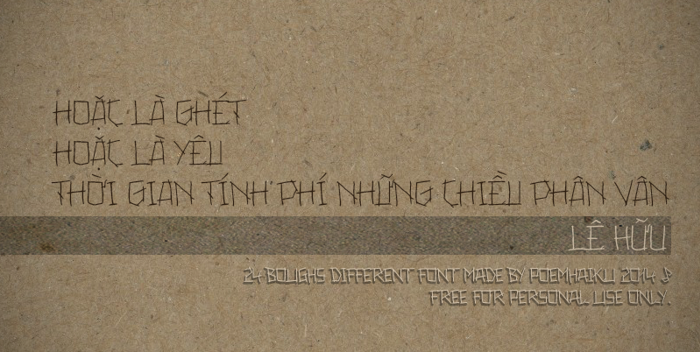 HOẶC LÀ GHÉT
HOẶC LÀ YÊU
THỜI GIAN TÍNH PHÍ NHỮNG CHIỀU PHÂN VÂN
LÊ HỮU
24 BOUGHS DIFFERENT FONT MADE BY POEMHAIKU 2014 ♪
FREE FOR PERSONAL USE ONLY.